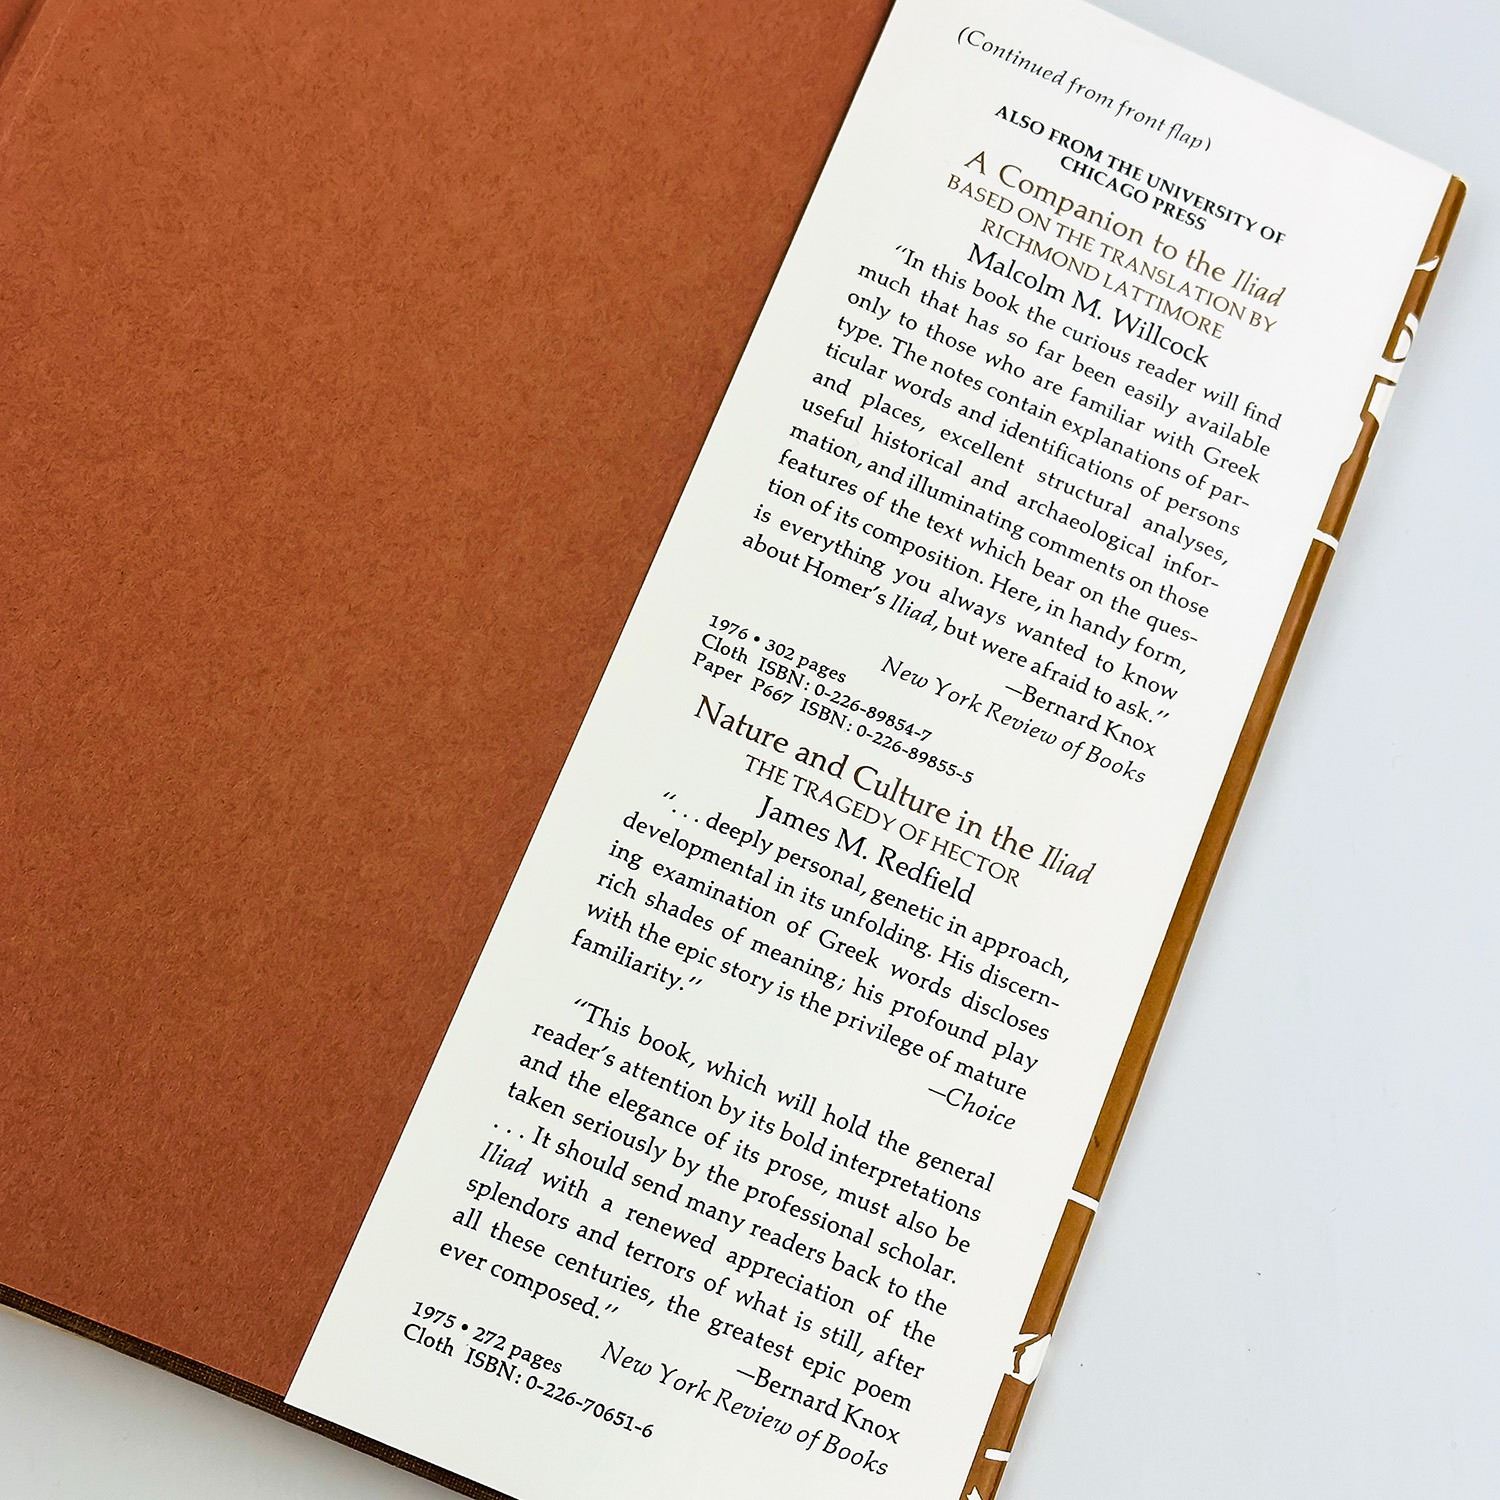 (Continued from front flap)
ALSO FROM THE UNIVERSITY OF
CHICAGO PRESS
A Companion to the Iliad
BASED ON THE TRANSLATION BY
RICHMOND LATTIMORE
Malcolm M. Willcock
“In this book the curious reader will find
much that has so far been easily available
only to those who are familiar with Greek
type. The notes contain explanations of par-
ticular words and identifications of persons
and places, excellent structural analyses,
useful historical and archaeological infor-
mation, and illuminating comments on those
features of the text which bear on the ques-
tion of its composition. Here, in handy form,
is everything you always wanted to know
about Homer’s Iliad, but were afraid to ask.”
—Bernard Knox
New York Review of Books
1976 • 302 pages
Cloth ISBN: 0-226-89854-7
Paper P667 ISBN: 0-226-89855-5
Nature and Culture in the Iliad
THE TRAGEDY OF HECTOR
James M. Redfield
“. . . deeply personal, genetic in approach,
developmental in its unfolding. His discern-
ing examination of Greek words discloses
rich shades of meaning; his profound play
with the epic story is the privilege of mature
familiarity.”
—Choice
“This book, which will hold the general
reader’s attention by its bold interpretations
and the elegance of its prose, must also be
taken seriously by the professional scholar.
. . . It should send many readers back to the
Iliad with a renewed appreciation of the
splendors and terrors of what is still, after
all these centuries, the greatest epic poem
ever composed.”
—Bernard Knox
New York Review of Books
1975 • 272 pages
Cloth ISBN: 0-226-70651-6